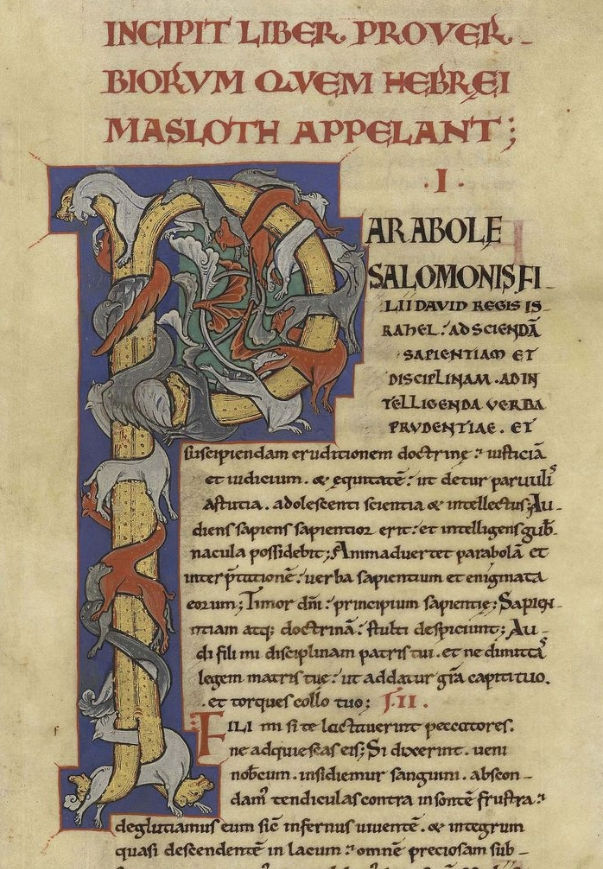 INCIPIT LIBER PROVER-
BIORVM QVEM HEBREI
MASLOTH APPELANT;
·I·
PARABOLE
SALOMONIS FI-
LII DAVID REGIS IS-
RAHEL. AD SCIENDĀ
SAPIENTIAM ET
DISCIPLINAM. AD IN
TELLIGENDA VERBA
PRVDENTIAE. ET
suscipiendam eruditionem doctrinę: iusticiā
et iudicium. & ęquitatē: ut detur paruulis
astutia. adolescenti scientia & intellectus; Au-
diens sapiens sapientior erit: et intelligens gub̄-
nacula possidebit; Animaduertet parabolā et
interp̄tationē: uerba sapientium et enigmata
eorum; Timor dn̄i: principium sapientię; Sapien-
tiam atq; doctrinā: stulti despiciunt; Au-
di fili mi disciplinam patris tui. et ne dimittas
legem matris tuę: ut addatur gr̄a capiti tuo.
et torques collo tuo; II.
FILI mi si te lactauerint peccatores.
ne adquiescas eis; Si dixerint. ueni
nobcum. insidiemur sanguini. abscon-
dam' tendiculas contra insontē frustra:
deglutiamus eum sic̄ infernus uiuentē. & integrum
quasi descendentē in lacum: omnē preciosam sub-